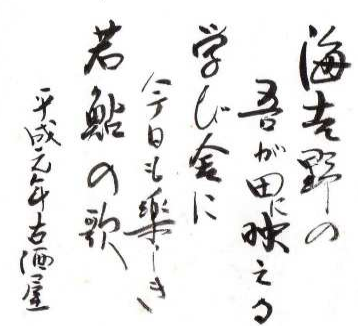 海吉野の
吾が田に映える
学び舎に
今日も楽しき
若鮎の歌
平成元年古酒屋